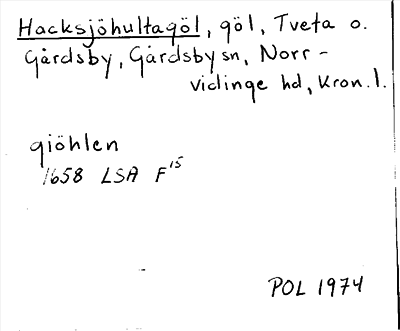 Hacksjöhultagöl, göl, Tveta o.
Gårdsby, Gårdsby sn, Norr-
vidinge hd, Kron. l.
giöhlen
1658 LSA F15
POL 1974